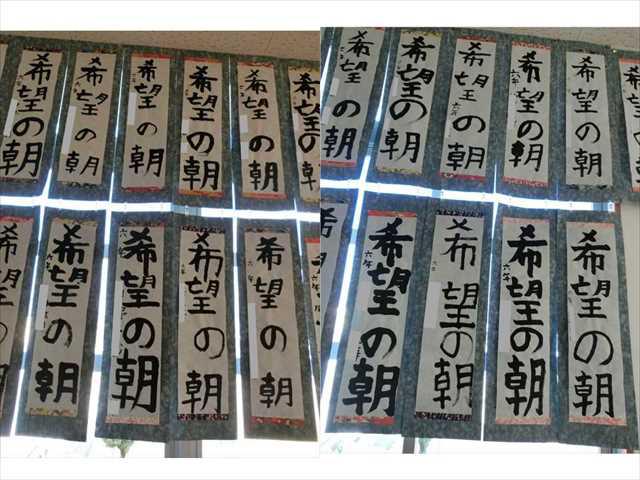 希望の朝
希望の朝
希望の朝
希望の朝
希望の朝
希望の朝
希望の朝
六年
希望の朝
六年
希望の朝
六年
希望の朝
六年
希望の朝
希望の朝
希望の朝
六年
希望の朝
六年
希望の朝
希望の朝
希望の朝
希望の朝
六年
希望の朝
六年
希望の朝
六年